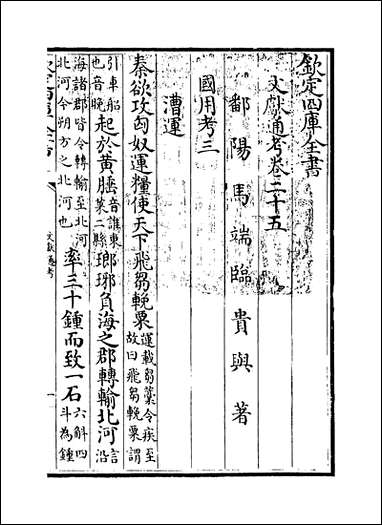 欽定四庫全書
文獻通考卷二十五
鄱陽馬端臨貴與著
國用考三
漕運
秦欲攻匈奴運糧使天下飛芻輓粟運載芻藁令疾至故曰飛芻輓粟謂
引車船也音晚起於黃腄音誰東萊二縣瑯琊負海之郡轉輸北河言沿
海諸郡皆令轉輸至北河北河今朔方之北河也率三十鍾而致一石六斛四斗為鍾
欽定四庫全書
文獻通考
一